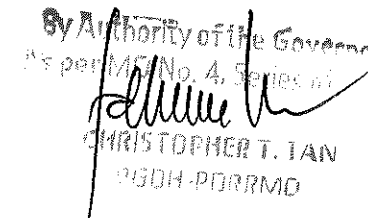 By Authority of the Governo
As per MO No. 4, Series of
CHRISTOPHER T. TAN
PGDH-PDRRMO